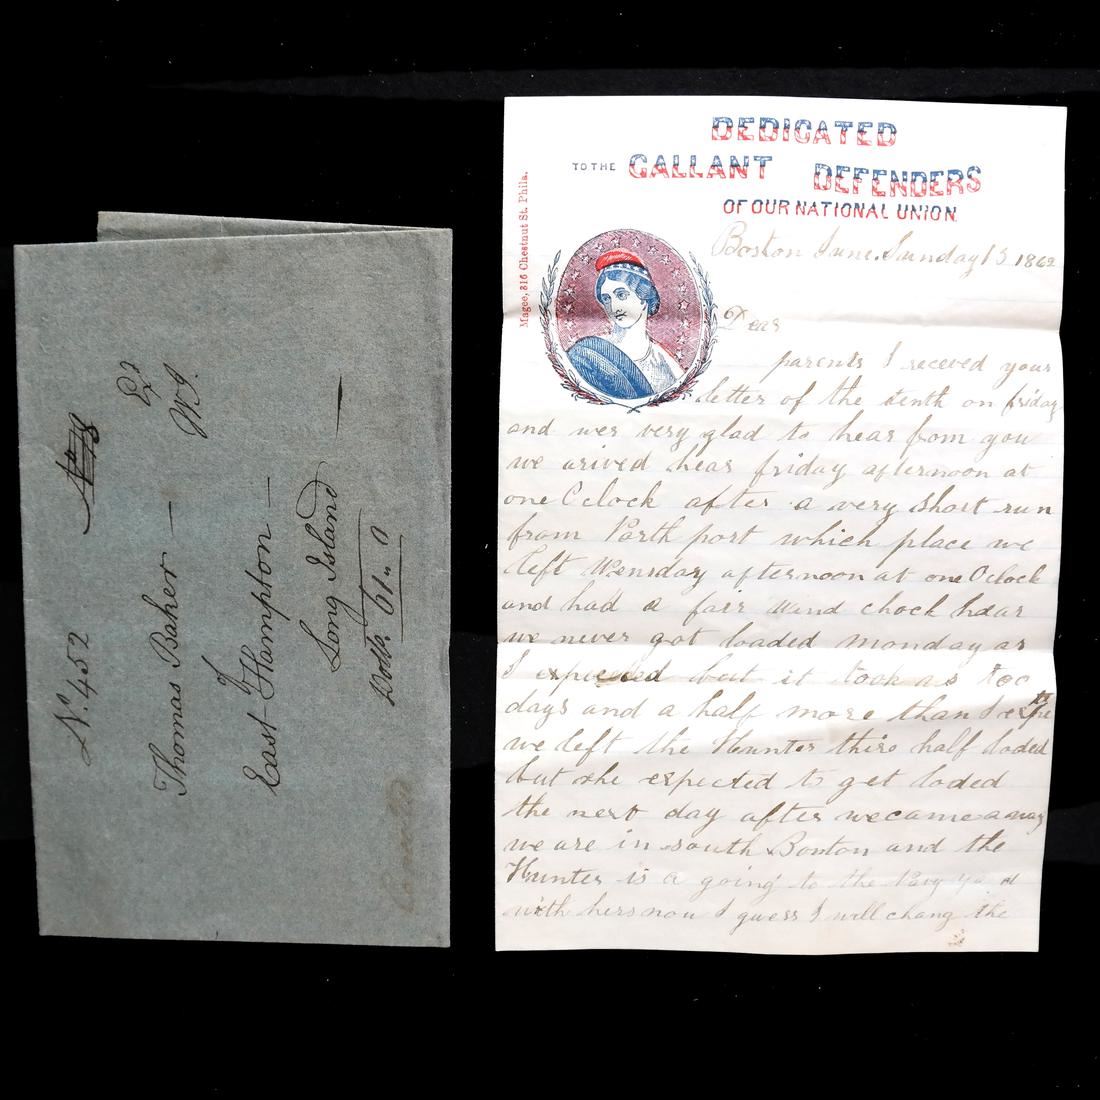 N. 452
Thomas Baker —
of
East-Hampton —
Long Island —
DEDICATED
TO THE GALLANT DEFENDERS
OF OUR NATIONAL UNION
Magee, 316 Chestnut St. Phila.
Boston June. Sunday 15 1862
Dear
parents I receved your
letter of the tenth on friday
and wer very glad to hear from you
we arived hear friday afternoon at
one Oclock after a very short run
from Porth port which place we
left Wensday afternoon at one Oclock
and had a fair wand chock hear
we never got loaded monday as
I expected but it took as too
days and a half more than I
we left the Hunter thire half loded
but she expected to get loded
the next day after we came away
we are in south Boston and the
Hunter is a going to the Navy yard
with hers now I guess I will chang the